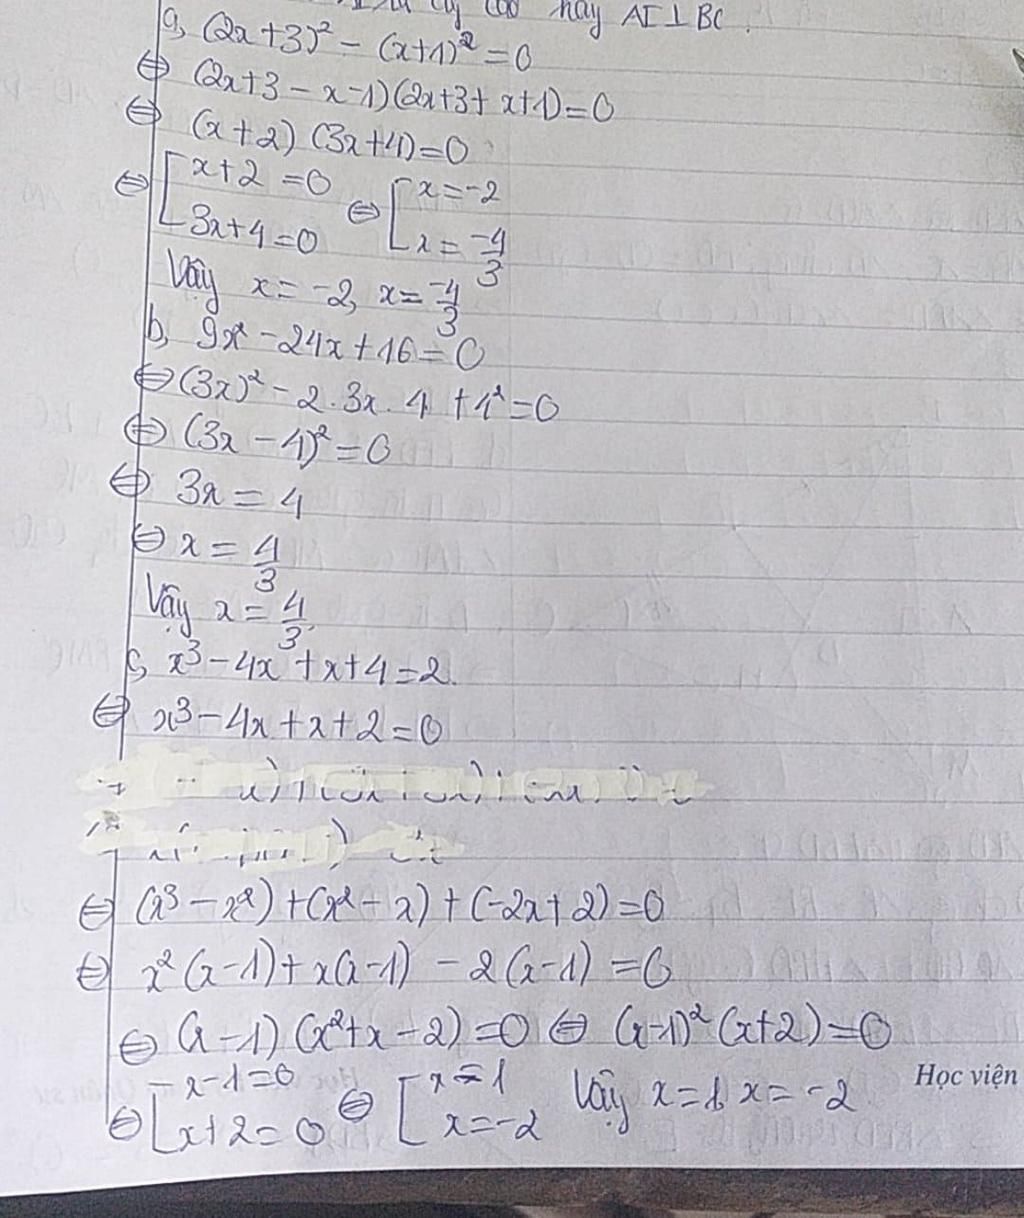 hay AI⊥BC.
a, (2x+3)² - (x+1)² = 0
⇔ (2x+3 - x-1)(2x+3+x+1)=0
⇔ (x+2) (3x+4)=0
⇔ [ x+2 =0 ⇔ [ x=-2
3x+4=0 x= -4/3
Vậy x= -2, x= -4/3
b, 9x² - 24x + 16 = 0
⇔ (3x)² - 2.3x.4 + 4² = 0
⇔ (3x - 4)² = 0
⇔ 3x = 4
⇔ x = 4/3
Vậy x = 4/3.
c, x³ - 4x + x + 4 = 2.
⇔ x³ - 4x + x + 2 = 0
⇔ (x³ - x²) + (x² - x) + (-2x + 2) = 0
⇔ x² (x-1) + x(x-1) - 2(x-1) = 0
⇔ (x-1) (x²+x-2) = 0 ⇔ (x-1)² (x+2) = 0
⇔ [ x-1=0 ⇔ [ x=1 Vậy x=1, x=-2
x+2=0 x=-2
Học viện